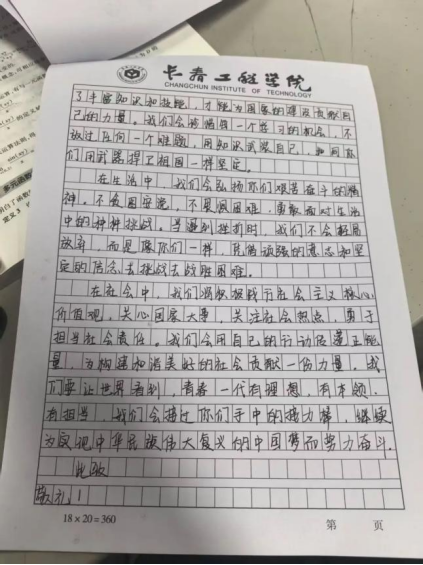 长春工程学院
CHANGCHUN INSTITUTE OF TECHNOLOGY
了丰富知识和技能，才能为国家的建设贡献自
己的力量。我们会珍惜每一个学习的机会，不
放过任何一个难题，用知识武装自己，和
们用武器捍卫祖国一样坚定。
在生活中，我们会弘扬你们艰苦奋斗的精
神。不贪图安逸，不畏惧困难，勇敢面对生活
中的种种挑战。当遇到挫折时，我们不会轻易
放弃，而是像你们一样，凭借顽强的意志和坚
定的信念去挑战去战胜困难。
在社会中，我们将积极践行社会主义核心
价值观。关心国家大事，关注社会热点，勇于
担当社会责任。我们会用自己的行动传递正能
量，为构建和谐美好的社会贡献一份力量。我
们要让世界看到，青春一代有理想，有本领，
有担当，我们会接过你们手中的接力棒，继续
为实现中华民族伟大复兴的中国梦而努力奋斗。
此致
敬礼！
18×20=360
第 页